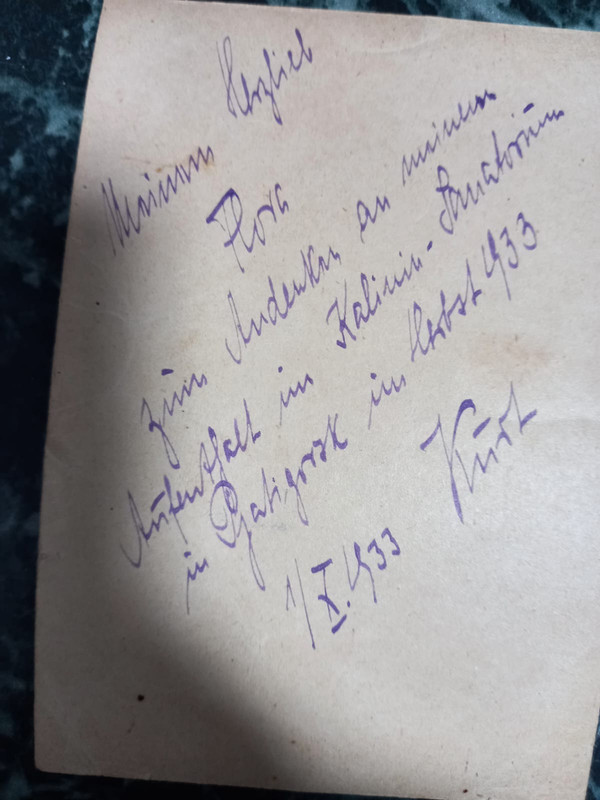 Meinem Herzlieb
Flora
zum Andenken an meinem
Aufenthalt im Kalinin-Sanatorium
in Pjatigorsk im Herbst 1933
Kurt
1/X.1933